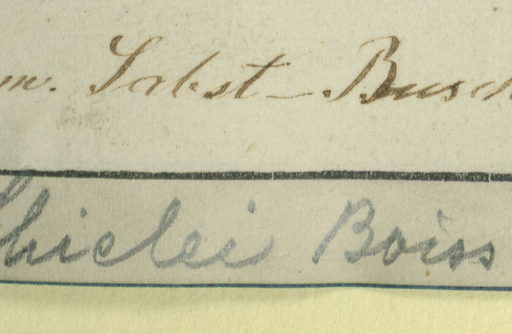 m. Sabst – Busch
Thielei Boiss